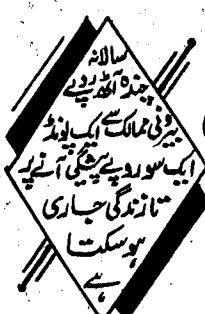 سالانہ
چندہ آٹھ روپے
بیرونی ممالک سے ایک پونڈ
ایک سو روپے پیشگی آنے پر
تا زندگی جاری
ہو سکتا
ہے